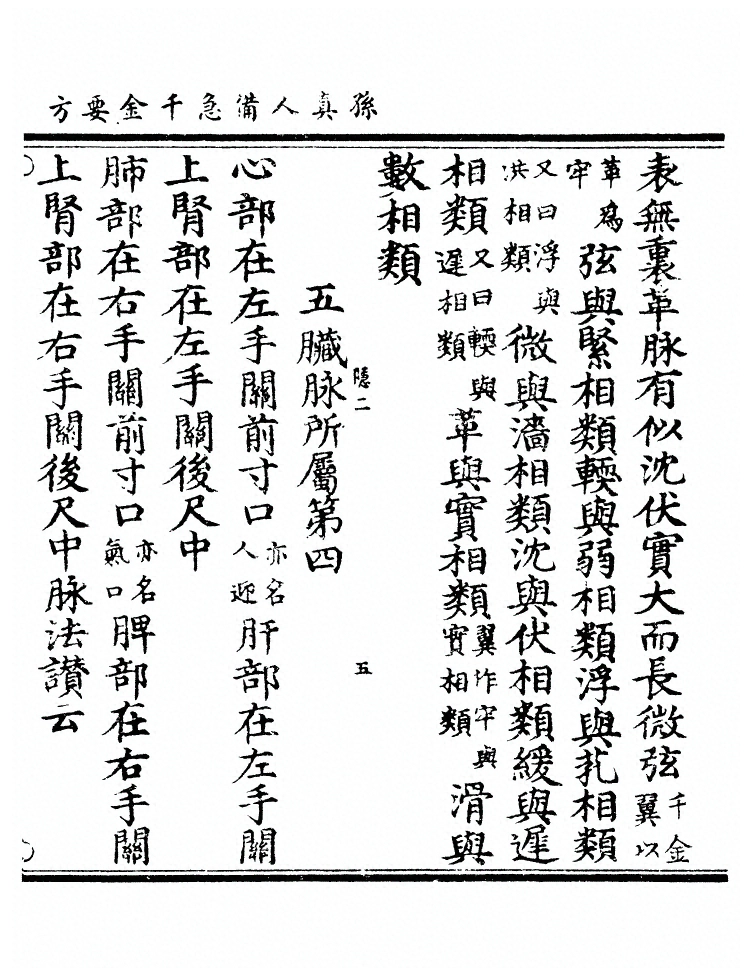 孫真人備急千金要方
表無裏革脉有似沈伏實大而長微弦千金翼以
革為牢弦與緊相類輭與弱相類浮與芤相類
又曰浮與洪相類微與濇相類沈與伏相類緩與遲
相類又曰輭與遲相類革與實相類翼作牢與實相類滑與
數相類
隱二 五
五臟脉所屬第四
心部在左手關前寸口亦名人迎肝部在左手關
上腎部在左手關後尺中
肺部在右手關前寸口亦名氣口脾部在右手關
上腎部在右手關後尺中脉法讃云